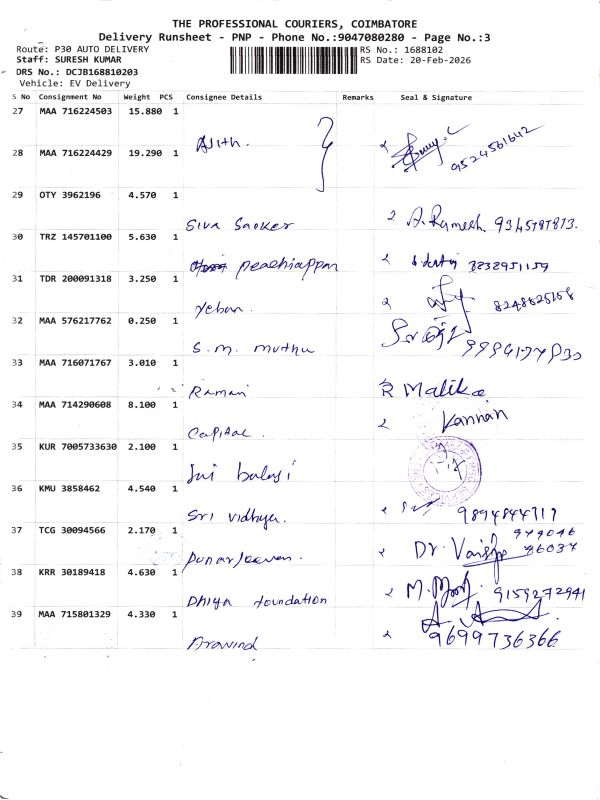 THE PROFESSIONAL COURIERS, COIMBATORE
Delivery Runsheet - PNP - Phone No.:9047080280 - Page No.:3
Route: P30 AUTO DELIVERY RS No.: 1688102
Staff: SURESH KUMAR RS Date: 20-Feb-2026
DRS No.: DCJB168810203
Vehicle: EV Delivery
S No Consignment No Weight PCS Consignee Details Remarks Seal & Signature
27 MAA 716224503 15.880 1
Ajith. 9524561642
28 MAA 716224429 19.290 1
29 OTY 3962196 4.570 1
Siva Sanker A. Ramesh.
30 TRZ 145701100 5.630 1
peachiappan 8232951159
31 TDR 200091318 3.250 1
Yeban. 8248625158
32 MAA 576217762 0.250 1
S.M. Muthu
33 MAA 716071767 3.010 1
Ramani R Malika
34 MAA 714290608 8.100 1
Capital. Kannan
35 KUR 7005733630 2.100 1
Jai balaji
36 KMU 3858462 4.540 1
Sri vidhya. 9894844717
37 TCG 30094566 2.170 1
Punarjeevan. Dr.
38 KRR 30189418 4.630 1
Dhiya foundation M. 9159272941
39 MAA 715801329 4.330 1
Aravind 9699736366